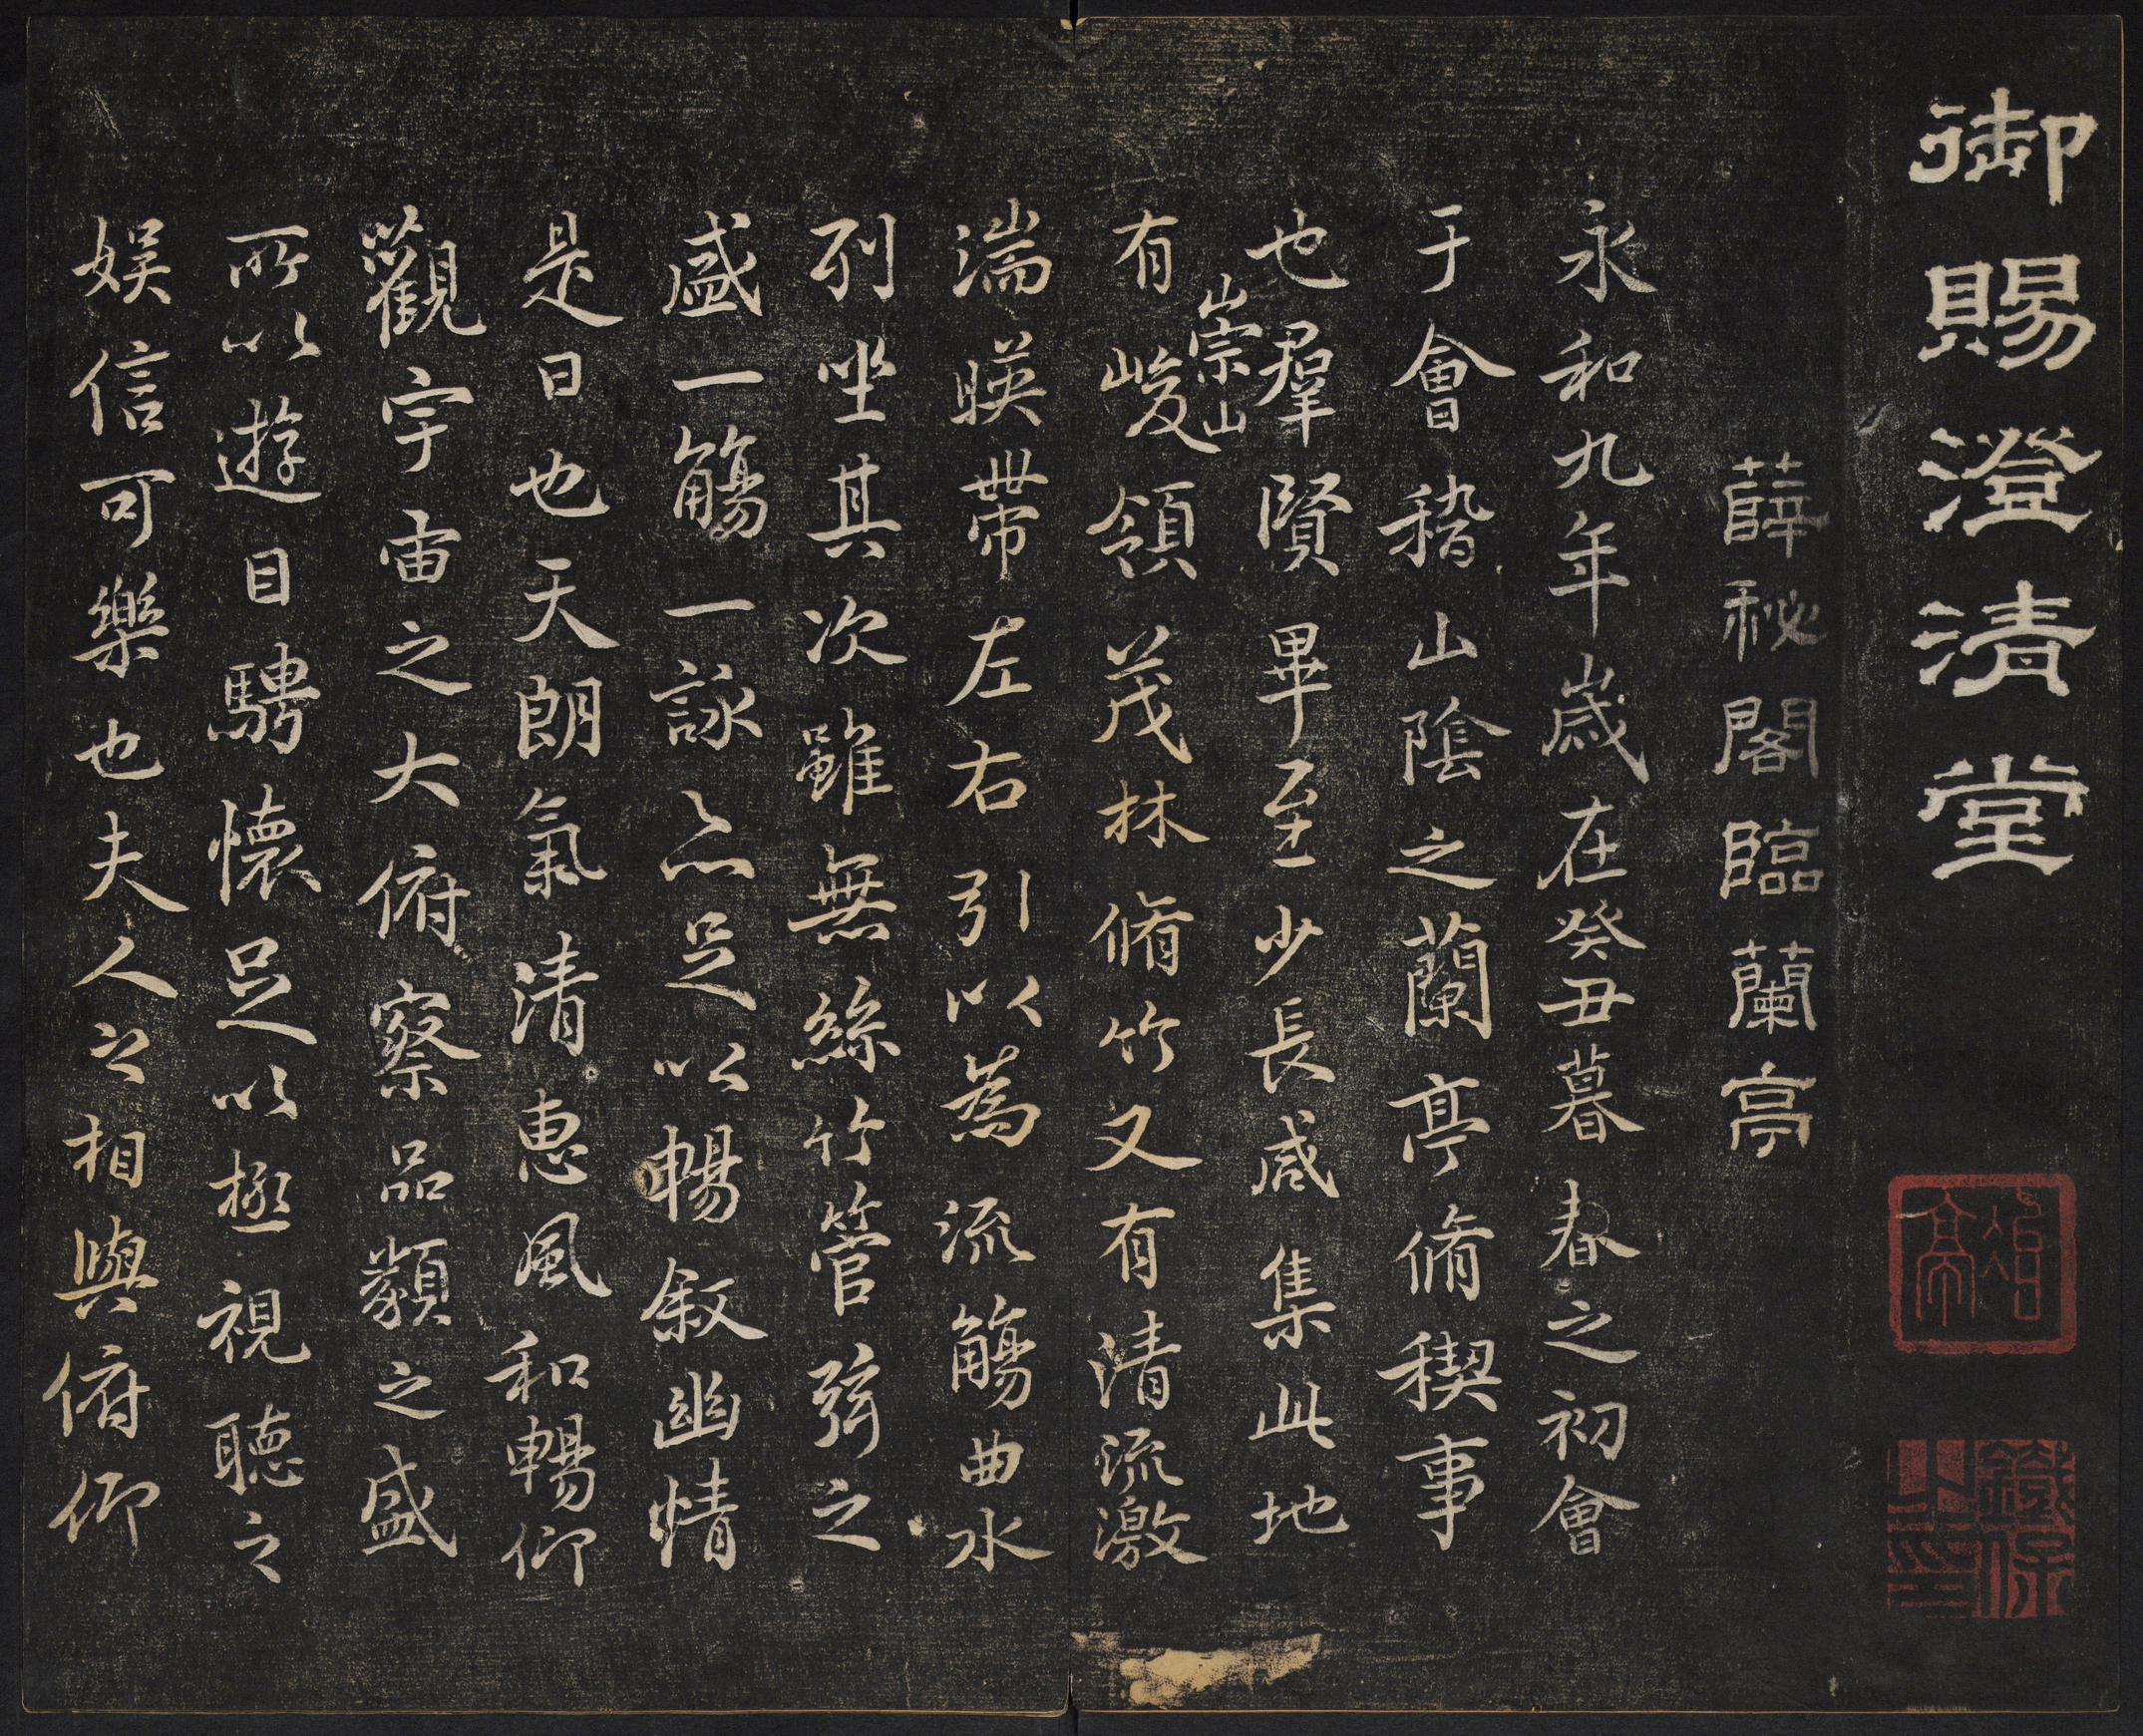 御賜澄清堂
薛秘閣臨蘭亭
永和九年歲在癸丑暮春之初會
于會稽山陰之蘭亭脩稧事
也羣賢畢至少長咸集此地
崇山
有峻領茂林脩竹又有清流激
湍暎帶左右引以為流觴曲水
列坐其次雖無絲竹管弦之
盛一觴一詠亦足以暢敘幽情
是日也天朗氣清惠風和暢仰
觀宇宙之大俯察品類之盛
所以遊目騁懷足以極視聽之
娛信可樂也夫人之相與俯仰
鐵保
之印